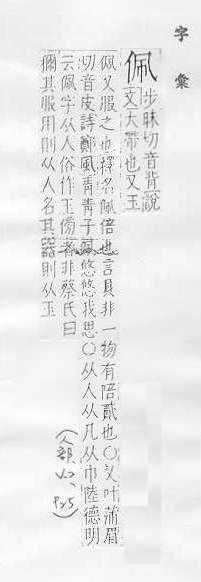 字彙
佩
步昧切音背説
文大帶也又玉
佩又服之也釋名佩倍也言其非一物有陪貳也○又叶蒲眉
切音皮詩鄭風青青子佩悠悠我思○从人从几从巾陸德明
云佩字从人俗作玉傍者非蔡氏曰
其服用則从人名其器則从玉
(人部